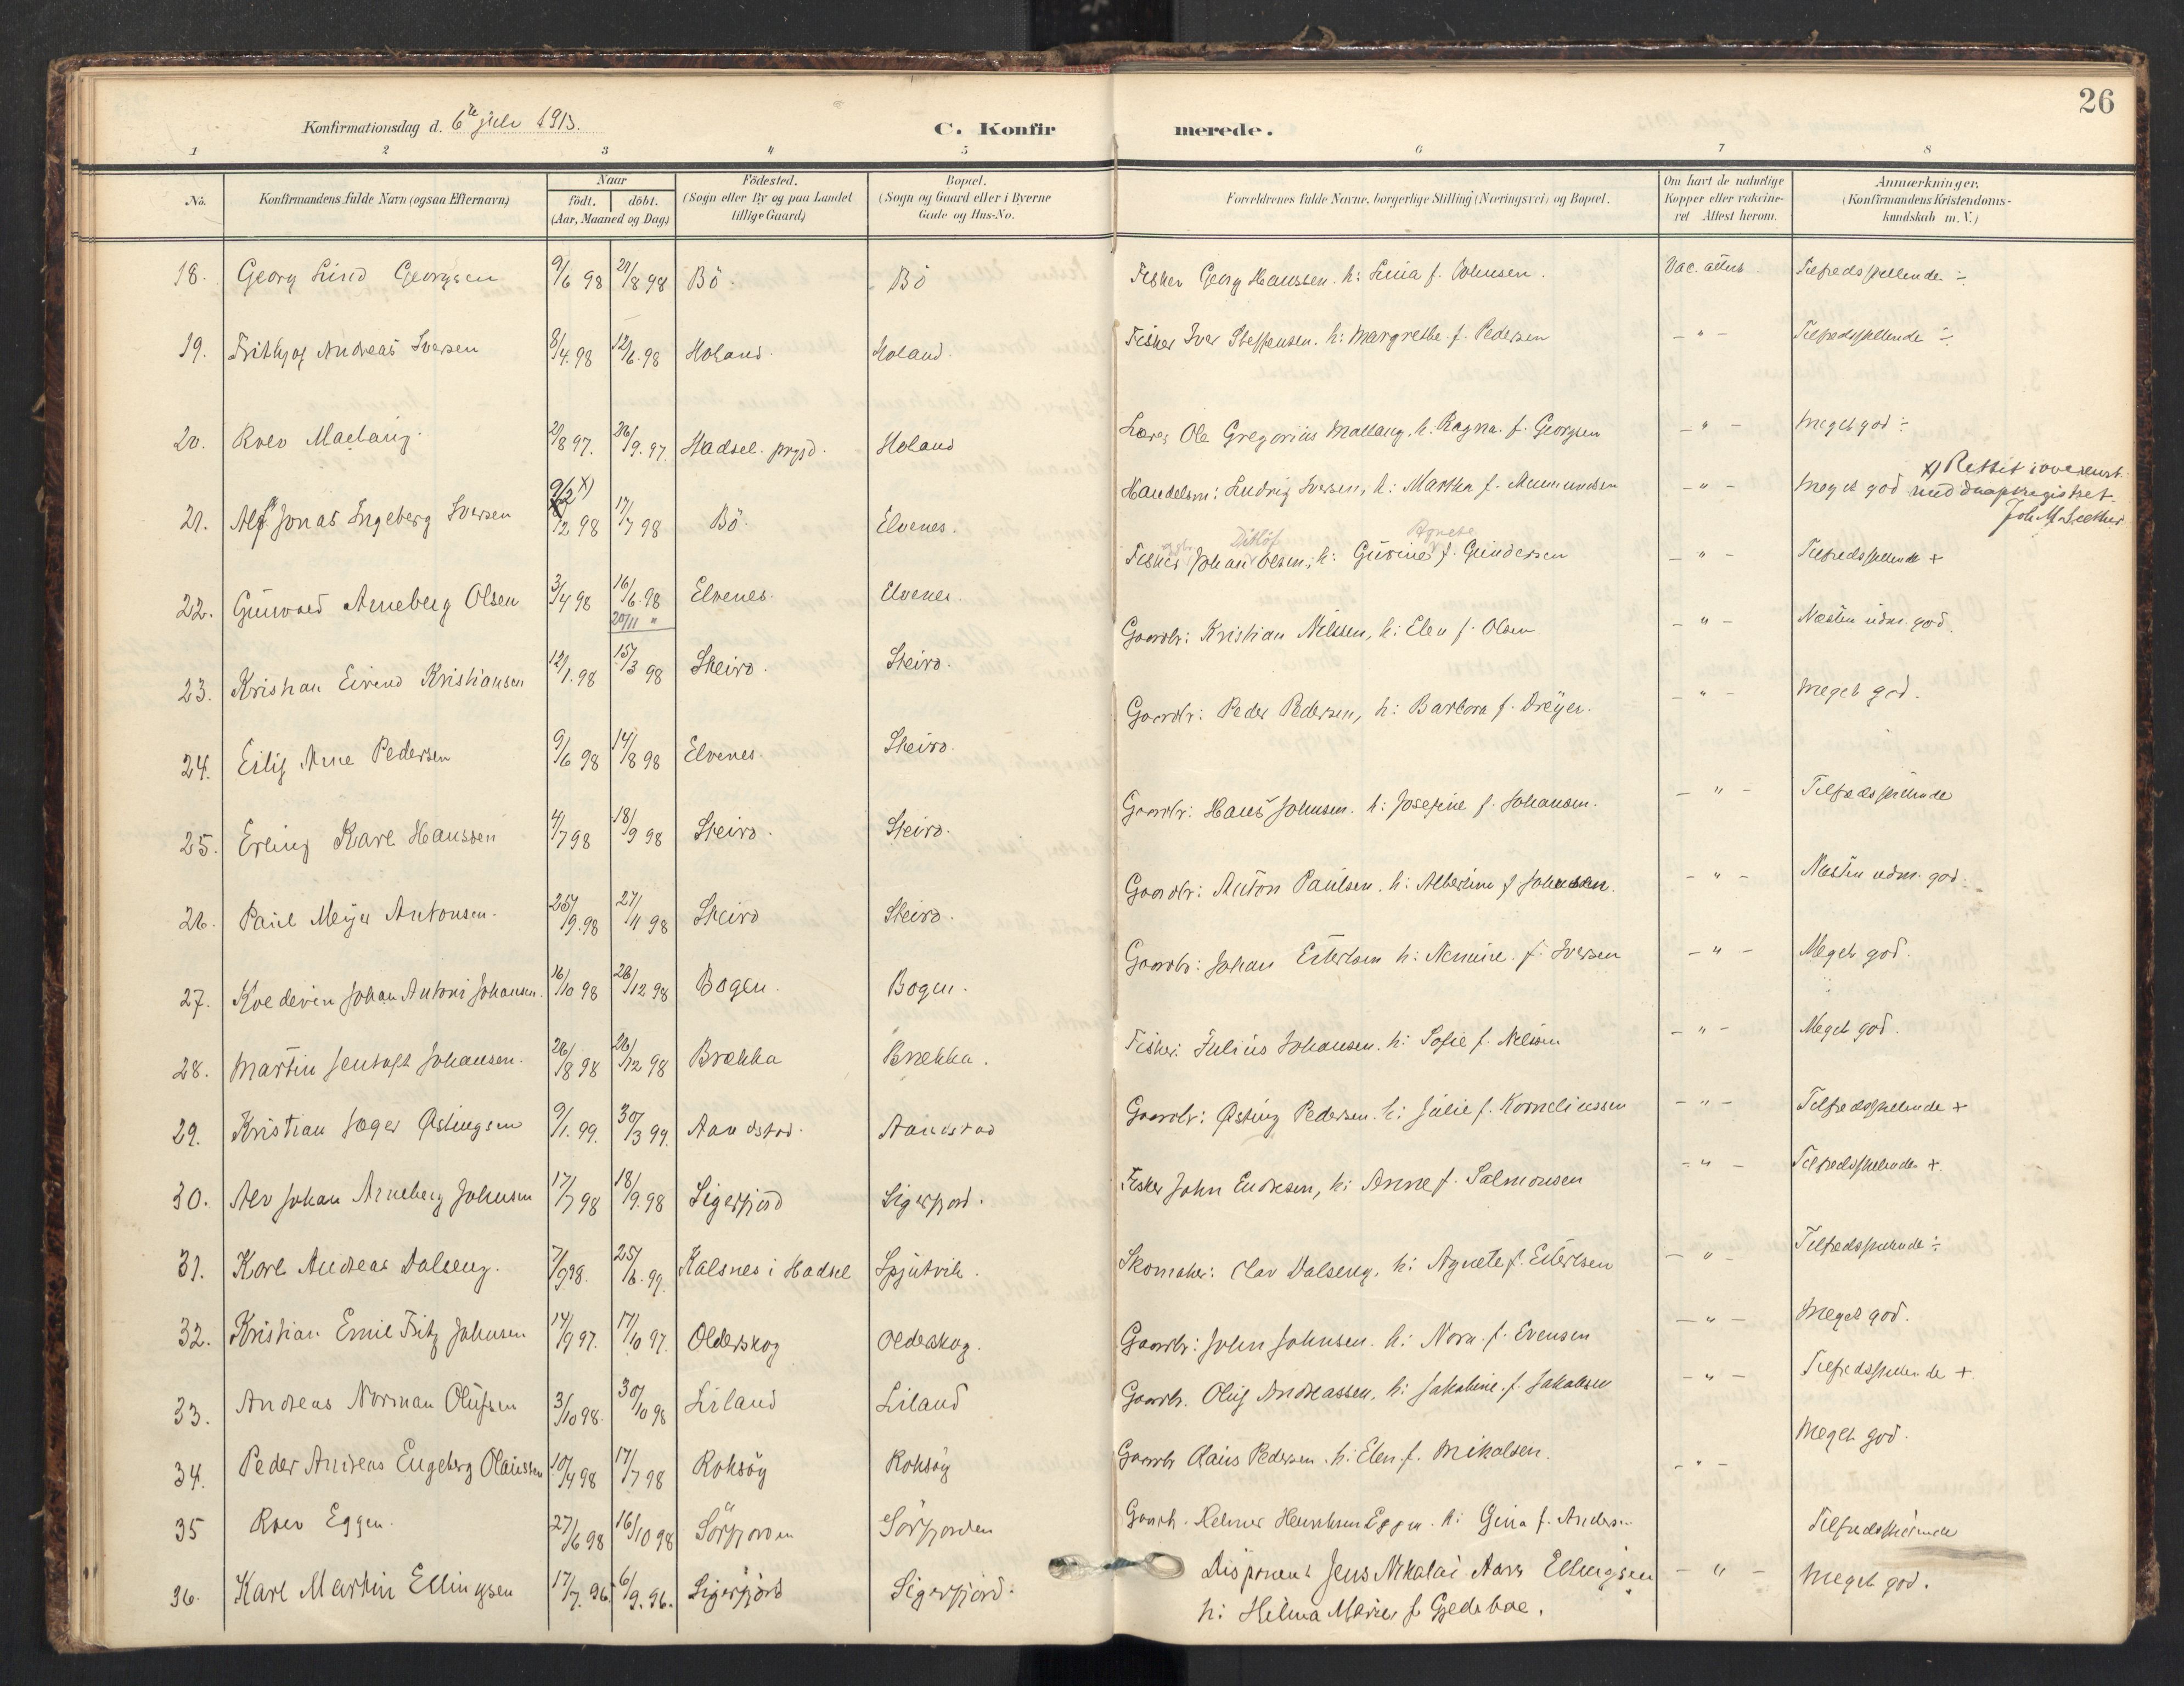 26
Konfirmationsdag d. 6te juli 1913.
C. Konfirmerede.
1 2 3 4 5 6 7 8
No.
Konfirmandens fulde Navn (ogsaa Efternavn)
Naar
födt. döbt.
(Aar, Maaned og Dag)
Födested.
(Sogn eller By og paa Landet
tillige Gaard)
Bopæl.
(Sogn og Gaard eller i Byerne
Gade og Hus-No.
Forældrenes fulde Navne, borgerlige Stilling (Næringsvei) og Bopæl.
Om havt de naturlige
Kopper eller vakcine-
ret Attest herom.
Anmærkninger.
(Konfirmandens Kristendoms-
kundskab m. V.)
18. Georg Lind Georgsen 9/6 98 21/8 98 Bö. Bö Fisker Georg Hanssen. h: Lina f. Johnsen. Vac. attest Tilfredsstillende ÷
19. Frithjof Andreas Iversen 8/4. 98 12/6. 98 Holand. Holand. Fisker Iver Steffensen. h: Margrethe f. Pedersen – " – Tilfredsstillende ÷
20. Rolv Mælang. 2/8 97. 26/9. 97. Hadsel. prgjd. Holand Lærer Ole Gregorius Mælang, h. Ragna. f. Georgsen – " – Meget god ÷
21. Alf Jonas Ingeberg Iversen 9/2 x) 12 98 17/7 98 Bö. Elvenes. Handelsm: Ludvig Iversen, h: Martha f. Amundsen – " – Meget god x) Rettet i overenst.
med daapsregistret.
22. Gunvald Arneberg Olsen 3/4 98 16/6. 98 20/11 " Elvenes. Elvenes. Fisker Johan Ditlöf Olsen, h: Gurine Agnete f. Gundersen – " – Tilfredsstillende +
23. Kristian Eivind Kristiansen 12/1. 98 15/3 98 Steiro. Steiro. Gaardbr: Kristian Nilssen, h: Elen f. Olsen – " – Næsten udm. god.
24. Eilif Arne Pedersen 9/6 98 14/8 98 Elvenes. Steiro. Gaardbr: Peder Pedersen, h: Barbora f. Dreyer. – " – Meget god.
25. Erling Karl Hanssen 4/7 98 18/9 98 Steiro. Steiro. Gaardbr: Hans Johnsen. h: Josefine f. Johansen. – " – Tilfredsstillende
26. Paul Meyer Antonsen. 25/9. 98 27/11 98 Steiro Steiro. Gaardbr: Anton Paulsen. h: Albertine f Johansen. – " – Næsten udm. god.
27. Johan Antoni Johansen. 16/10 98 26/12 98 Bogen. Bogen. Gaardbr: Johan Eilertsen h: f. Iversen – " – Meget god.
28. Martin Jentoft Johansen. 26/8 98 26/12 98 Brækka Brækka. Fisker: Julius Johansen. h: Sofie f. Nilssen – " – Meget god.
29. Kristian Jæger Østingsen 9/1. 99. 30/3 99. Aandstad. Aandstad Gaardbr: Østing Pedersen. h: Julie f. Korneliussen – " – Tilfredsstillende +
30. Alv Johan Arneberg Johnsen 17/7 98 18/9. 98 Sigerfjord Sigerfjord. Fisker John Endresen, h: Anne f. Salmonsen – " – Tilfredsstillende +.
31. Karl Andreas Dalseng. 7/9 98. 25/6. 99. Kalsnes i Hadsel Spjutvik. Skomaker: Olav Dalseng, h: Agnete f. Eilertsen – " – Tilfredsstillende ÷
32. Kristian Emil Fritz Johnsen 14/9 97. 17/10 97. Olderskog Olderskog. Gaardbr: John Johnsen. h: Nora. f. Evensen – " – Meget god.
33. Andreas Norman Olufsen 3/10 98. 30/10 98 Liland Liland Gaardbr. Oluf Andreassen, h: Jakobine. f. Jakobsen – " – Tilfredsstillende +
34. Peder Andreas Engeberg Olaussen 10/4 98 17/7 98 Roksöy Roksöy Gaardbr Olaus Pedersen. h: Elen. f. Mikalsen. – " – Meget god.
35 Rolv Eggen. 27/6 98 16/10 98 Sörfjorden Sörfjorden Gaardb. Helmer Henriksen Eggen. h: Gina f. Anders... Tilfredsstillende
36. Karl Martin Ellingsen 17/7. 96. 6/9. 96. Sigerfjord Sigerfjord. Disponent Jens Nikolai Aars Ellingsen – " – Meget god.
h: Hilma Marie f. Gjedeboe.